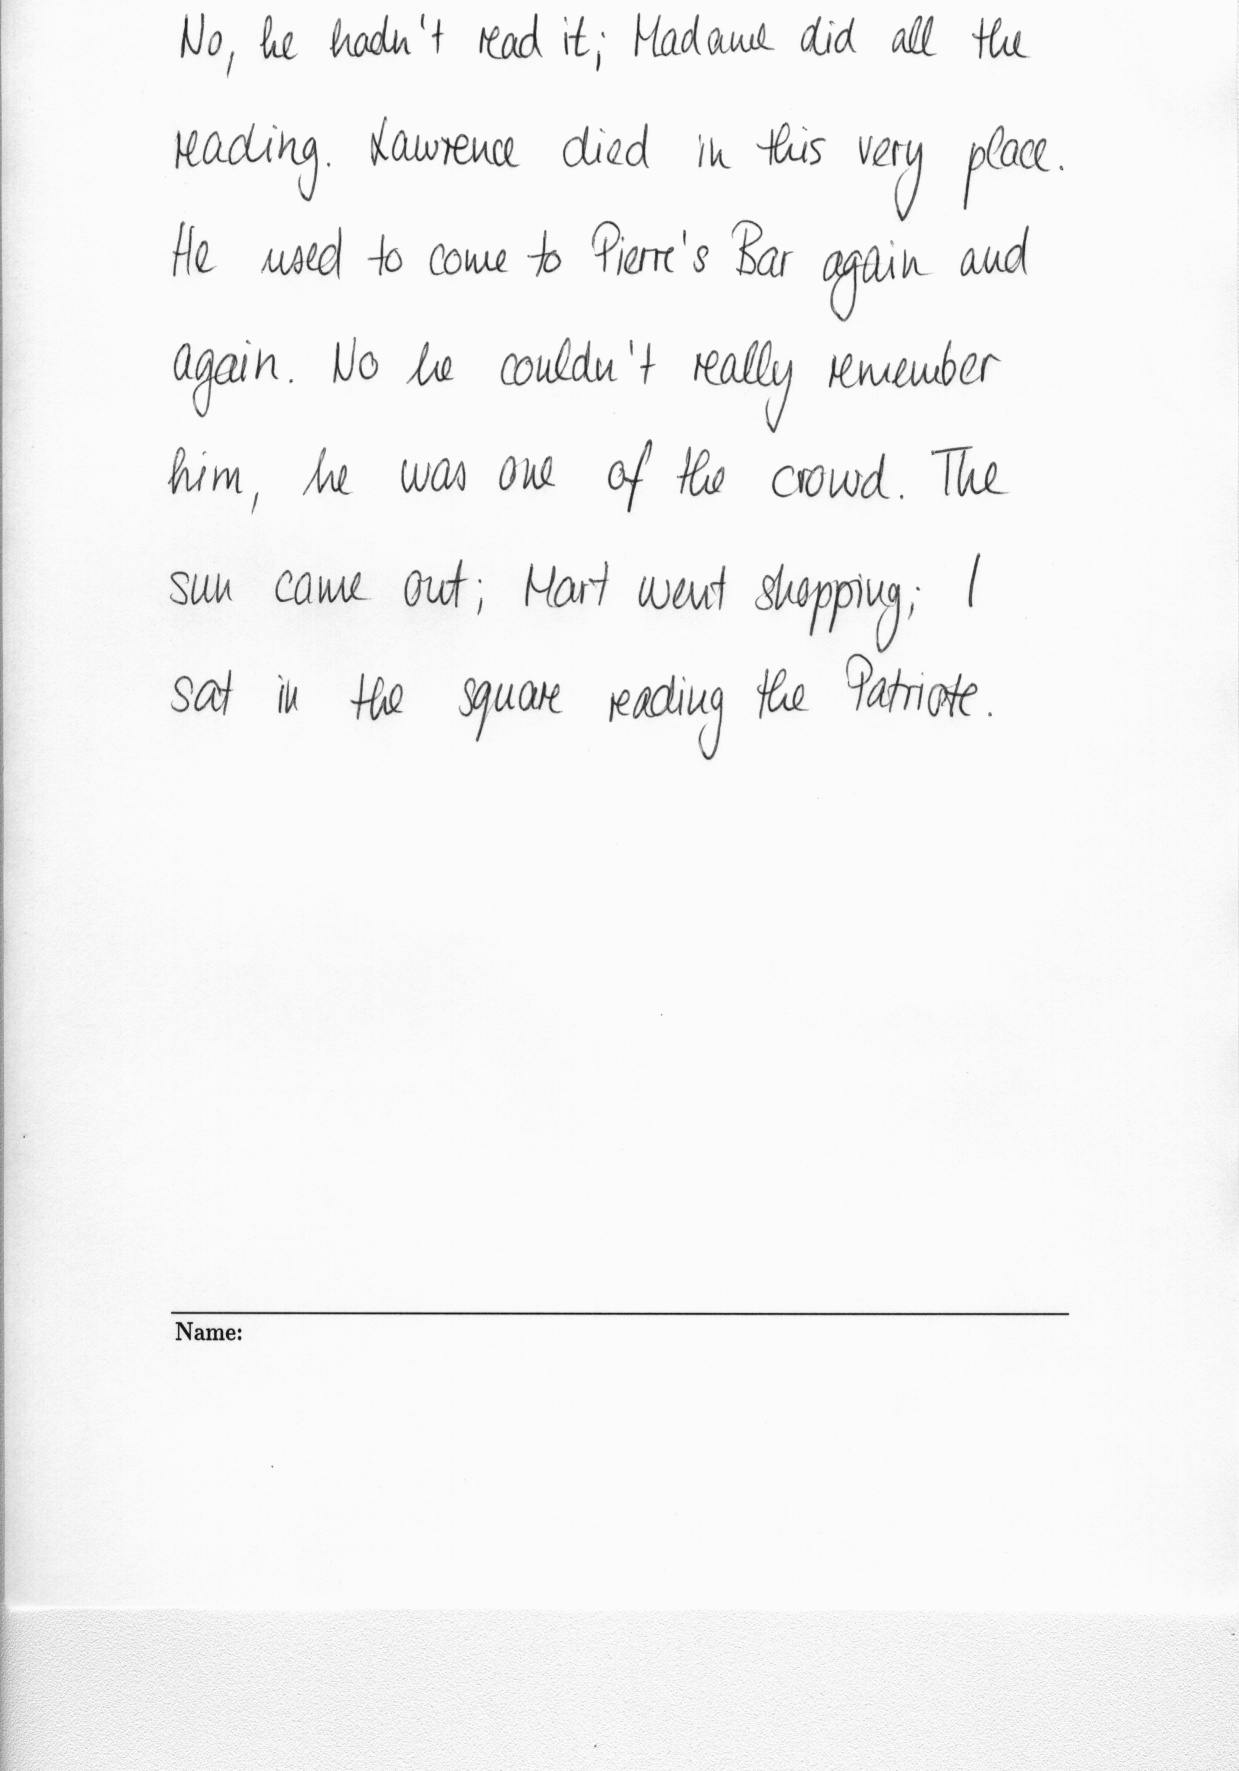 No, he hadn't read it; Madame did all the
reading. Lawrence died in this very place.
He used to come to Pierre's Bar again and
again. No he couldn't really remember
him, he was one of the crowd. The
sun came out; Mart went shopping; I
sat in the square reading the Patriote.
Name: